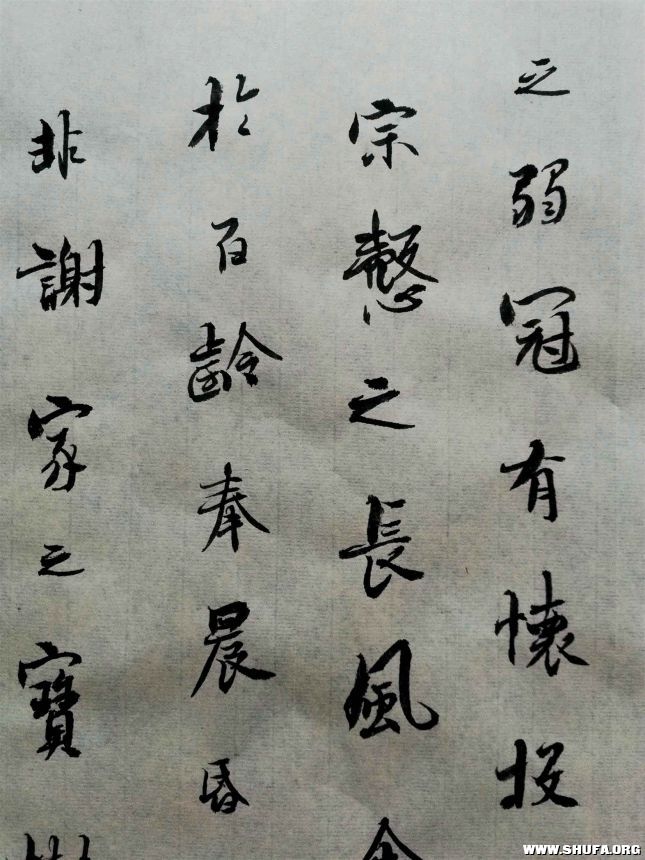 之弱冠有懷投
宗愨之長風
於百齡奉晨昏
非謝家之寶
WWW.SHUFA.ORG